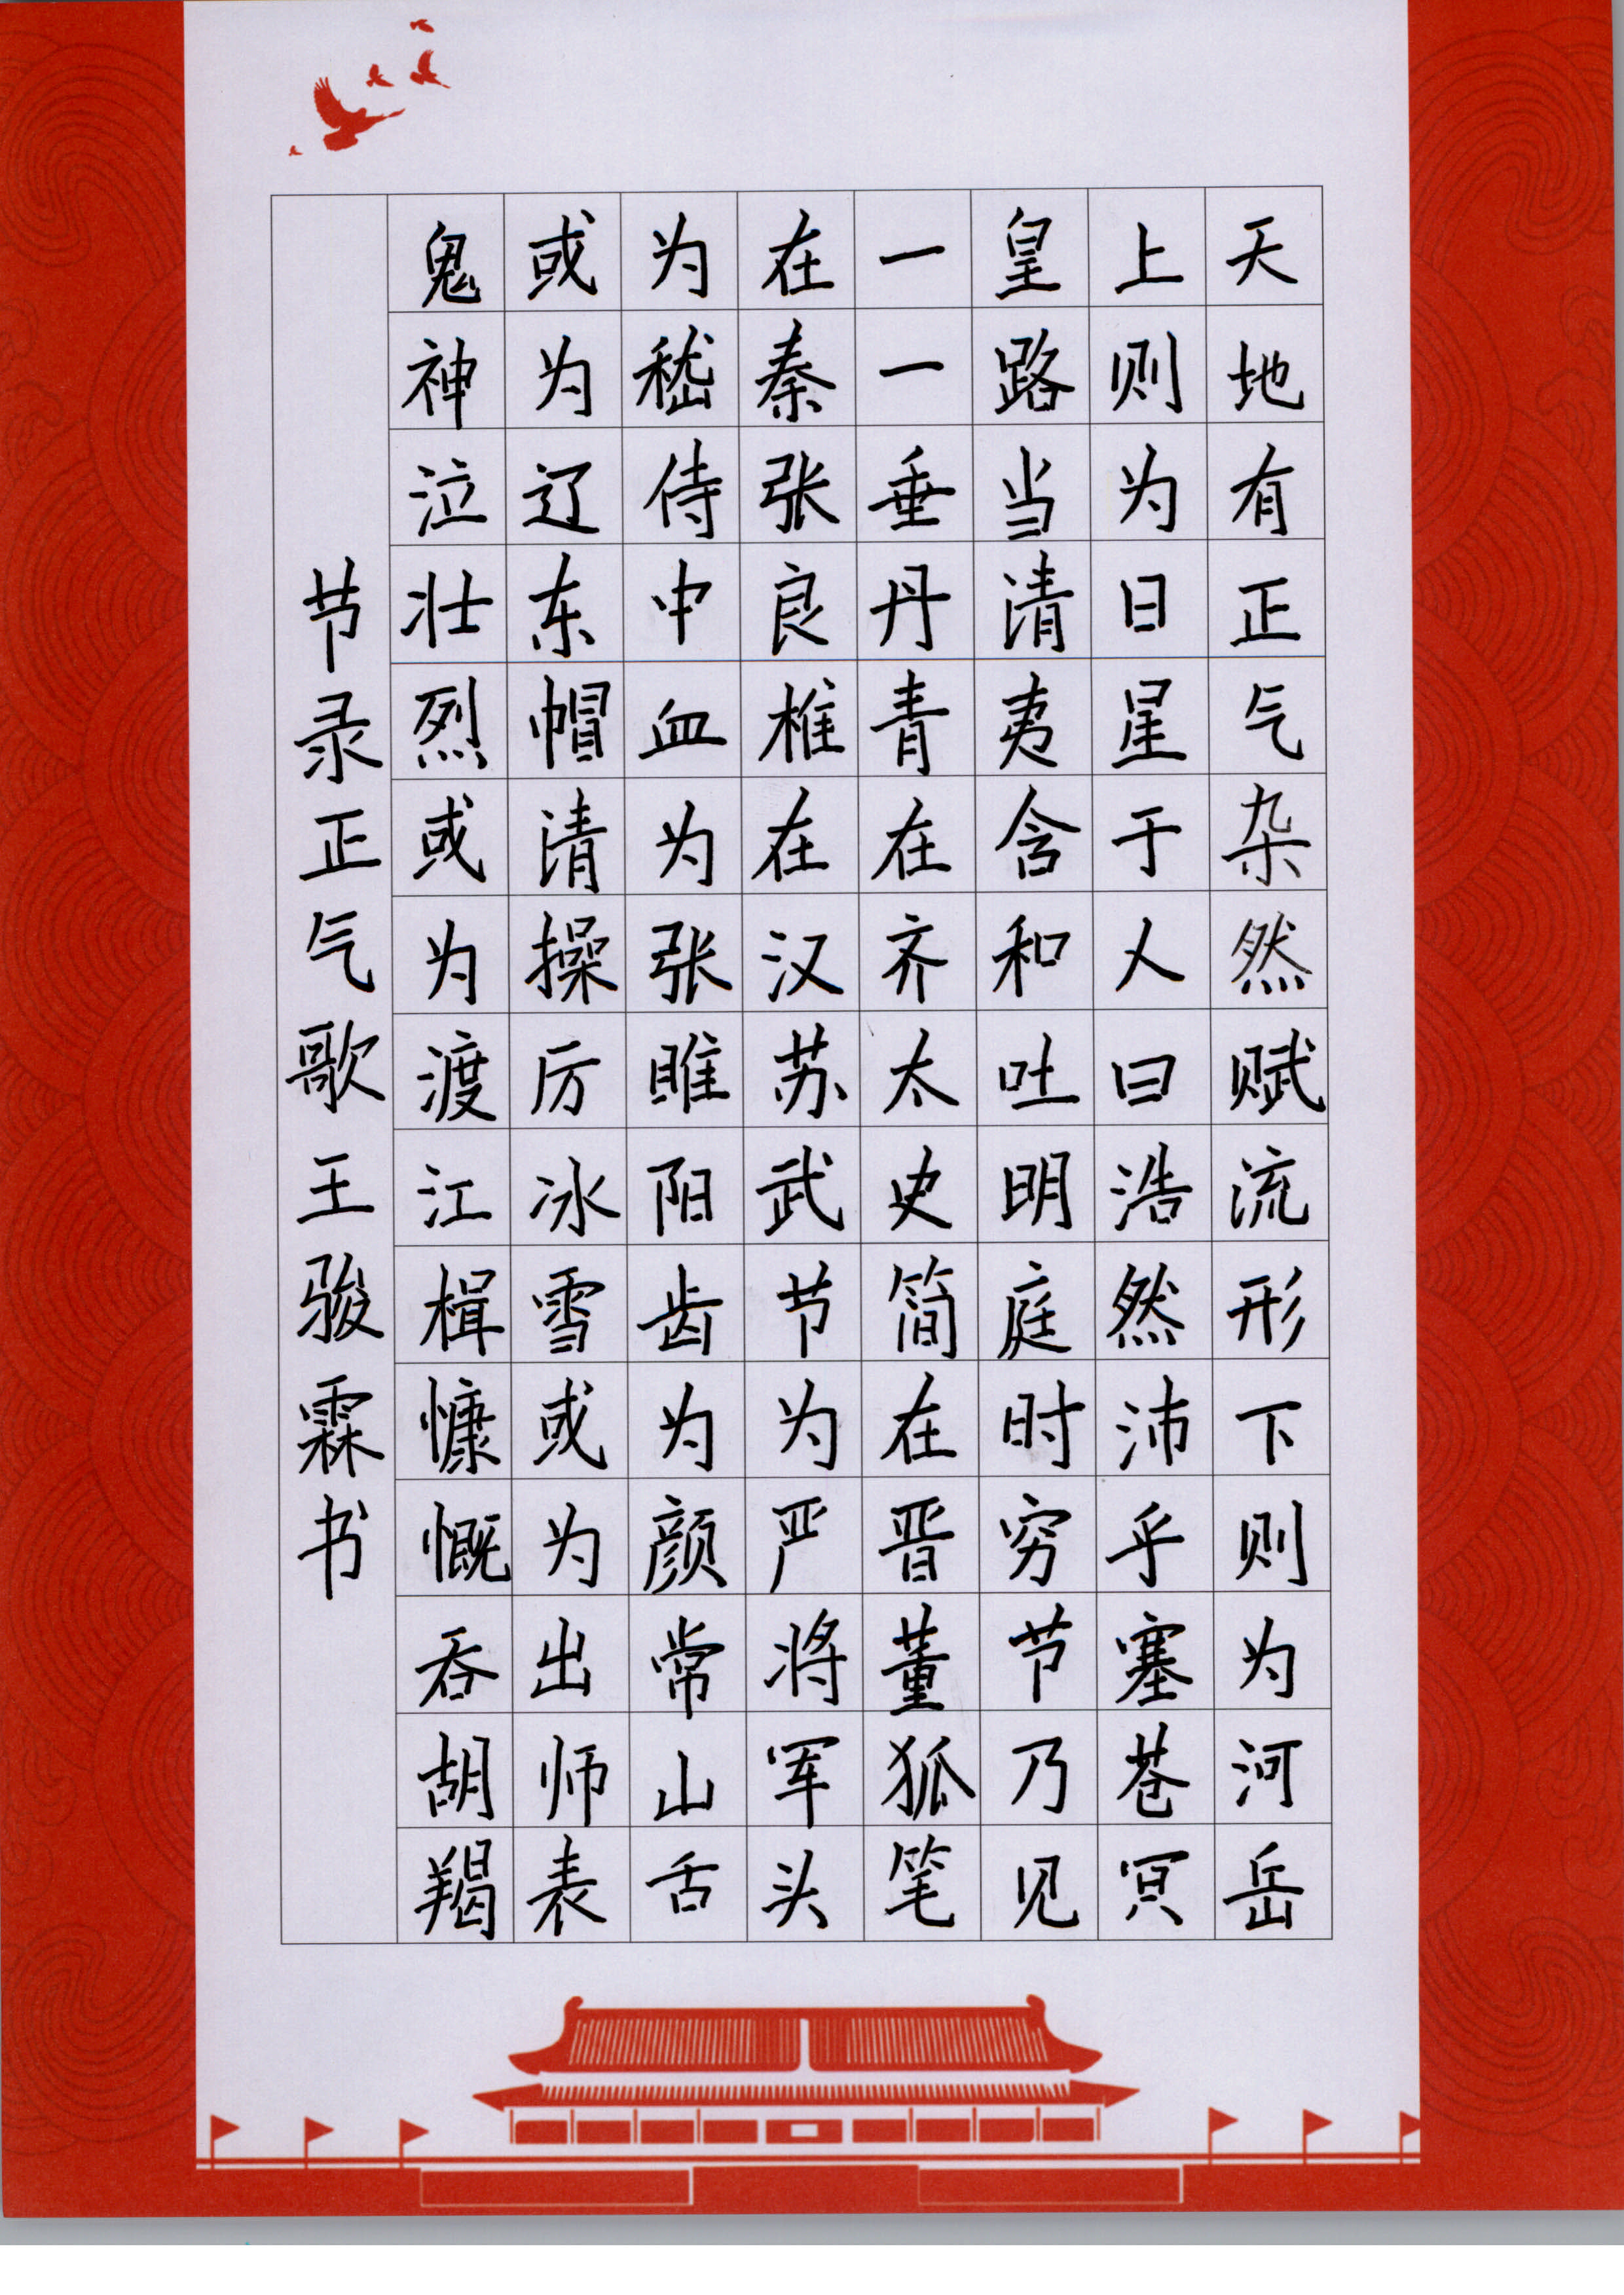 天地有正气杂然赋流形下则为河岳
上则为日星于人曰浩然沛乎塞苍冥
皇路当清夷含和吐明庭时穷节乃见
一一垂丹青在齐太史简在晋董狐笔
在秦张良椎在汉苏武节为严将军头
为嵇侍中血为张睢阳齿为颜常山舌
或为辽东帽清操厉冰雪或为出师表
鬼神泣壮烈或为渡江楫慷慨吞胡羯
节录正气歌王骏霖书